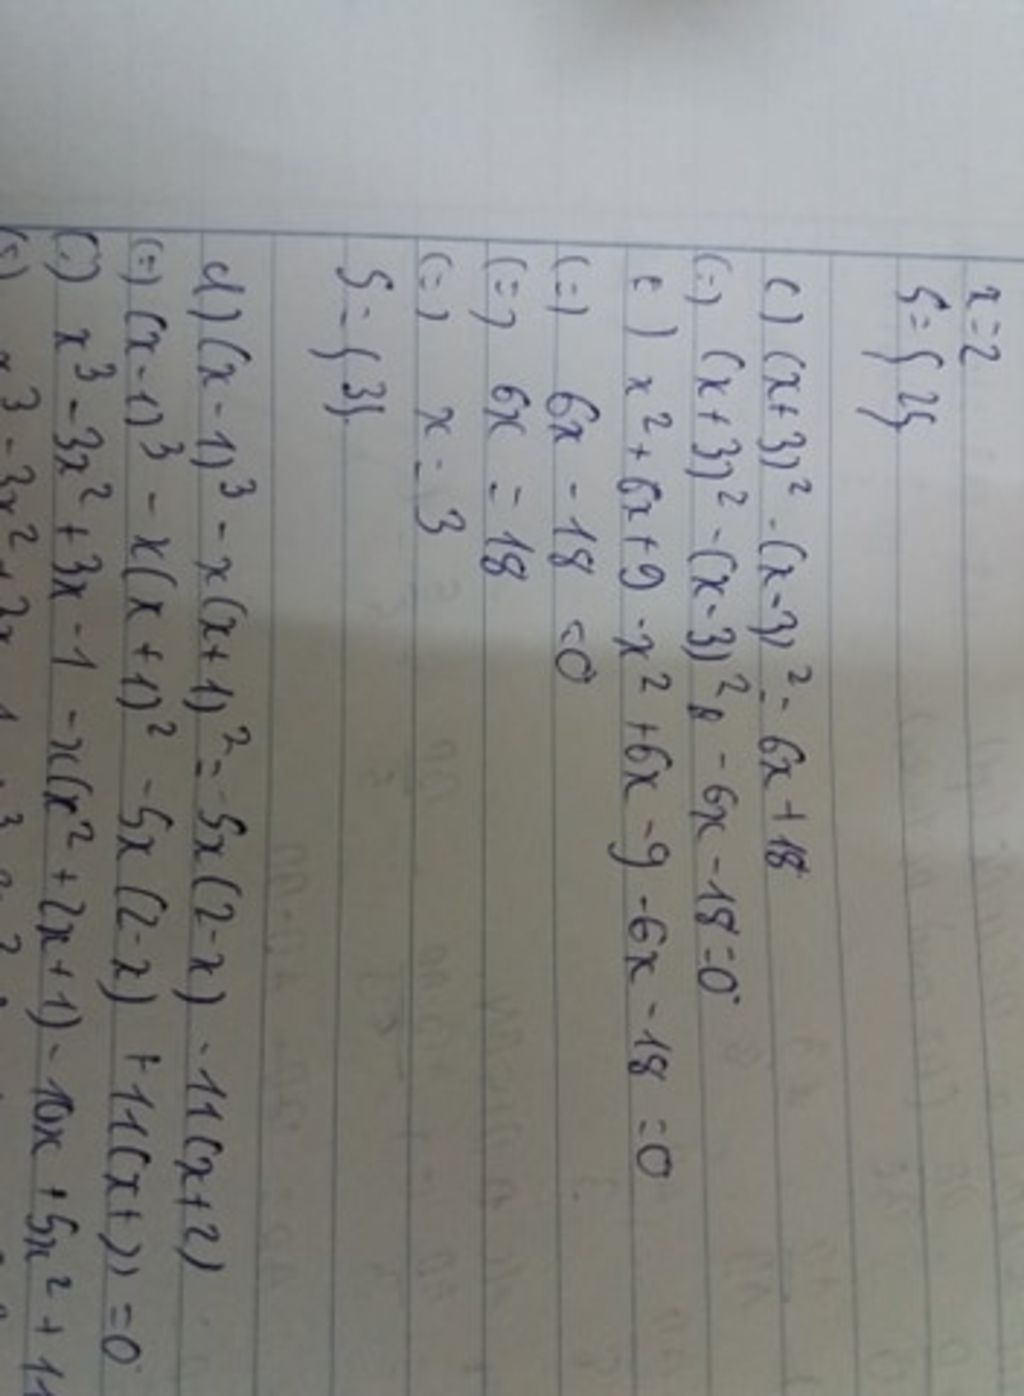 x = 2
S = { 2 }
c) (x+3)² - (x-3)² = 6x + 18
(=) (x+3)² - (x-3)² - 6x - 18 = 0
(=) x² + 6x + 9 - x² + 6x - 9 - 6x - 18 = 0
(=) 6x - 18 = 0
(=) 6x = 18
(=) x = 3
S = { 3 }
d) (x-1)³ - x(x+1)² = 5x(2-x) - 11(x+2)
(=) (x-1)³ - x(x+1)² - 5x(2-x) + 11(x+2) = 0
(=) x³ - 3x² + 3x - 1 - x(x² + 2x + 1) - 10x + 5x² + 11